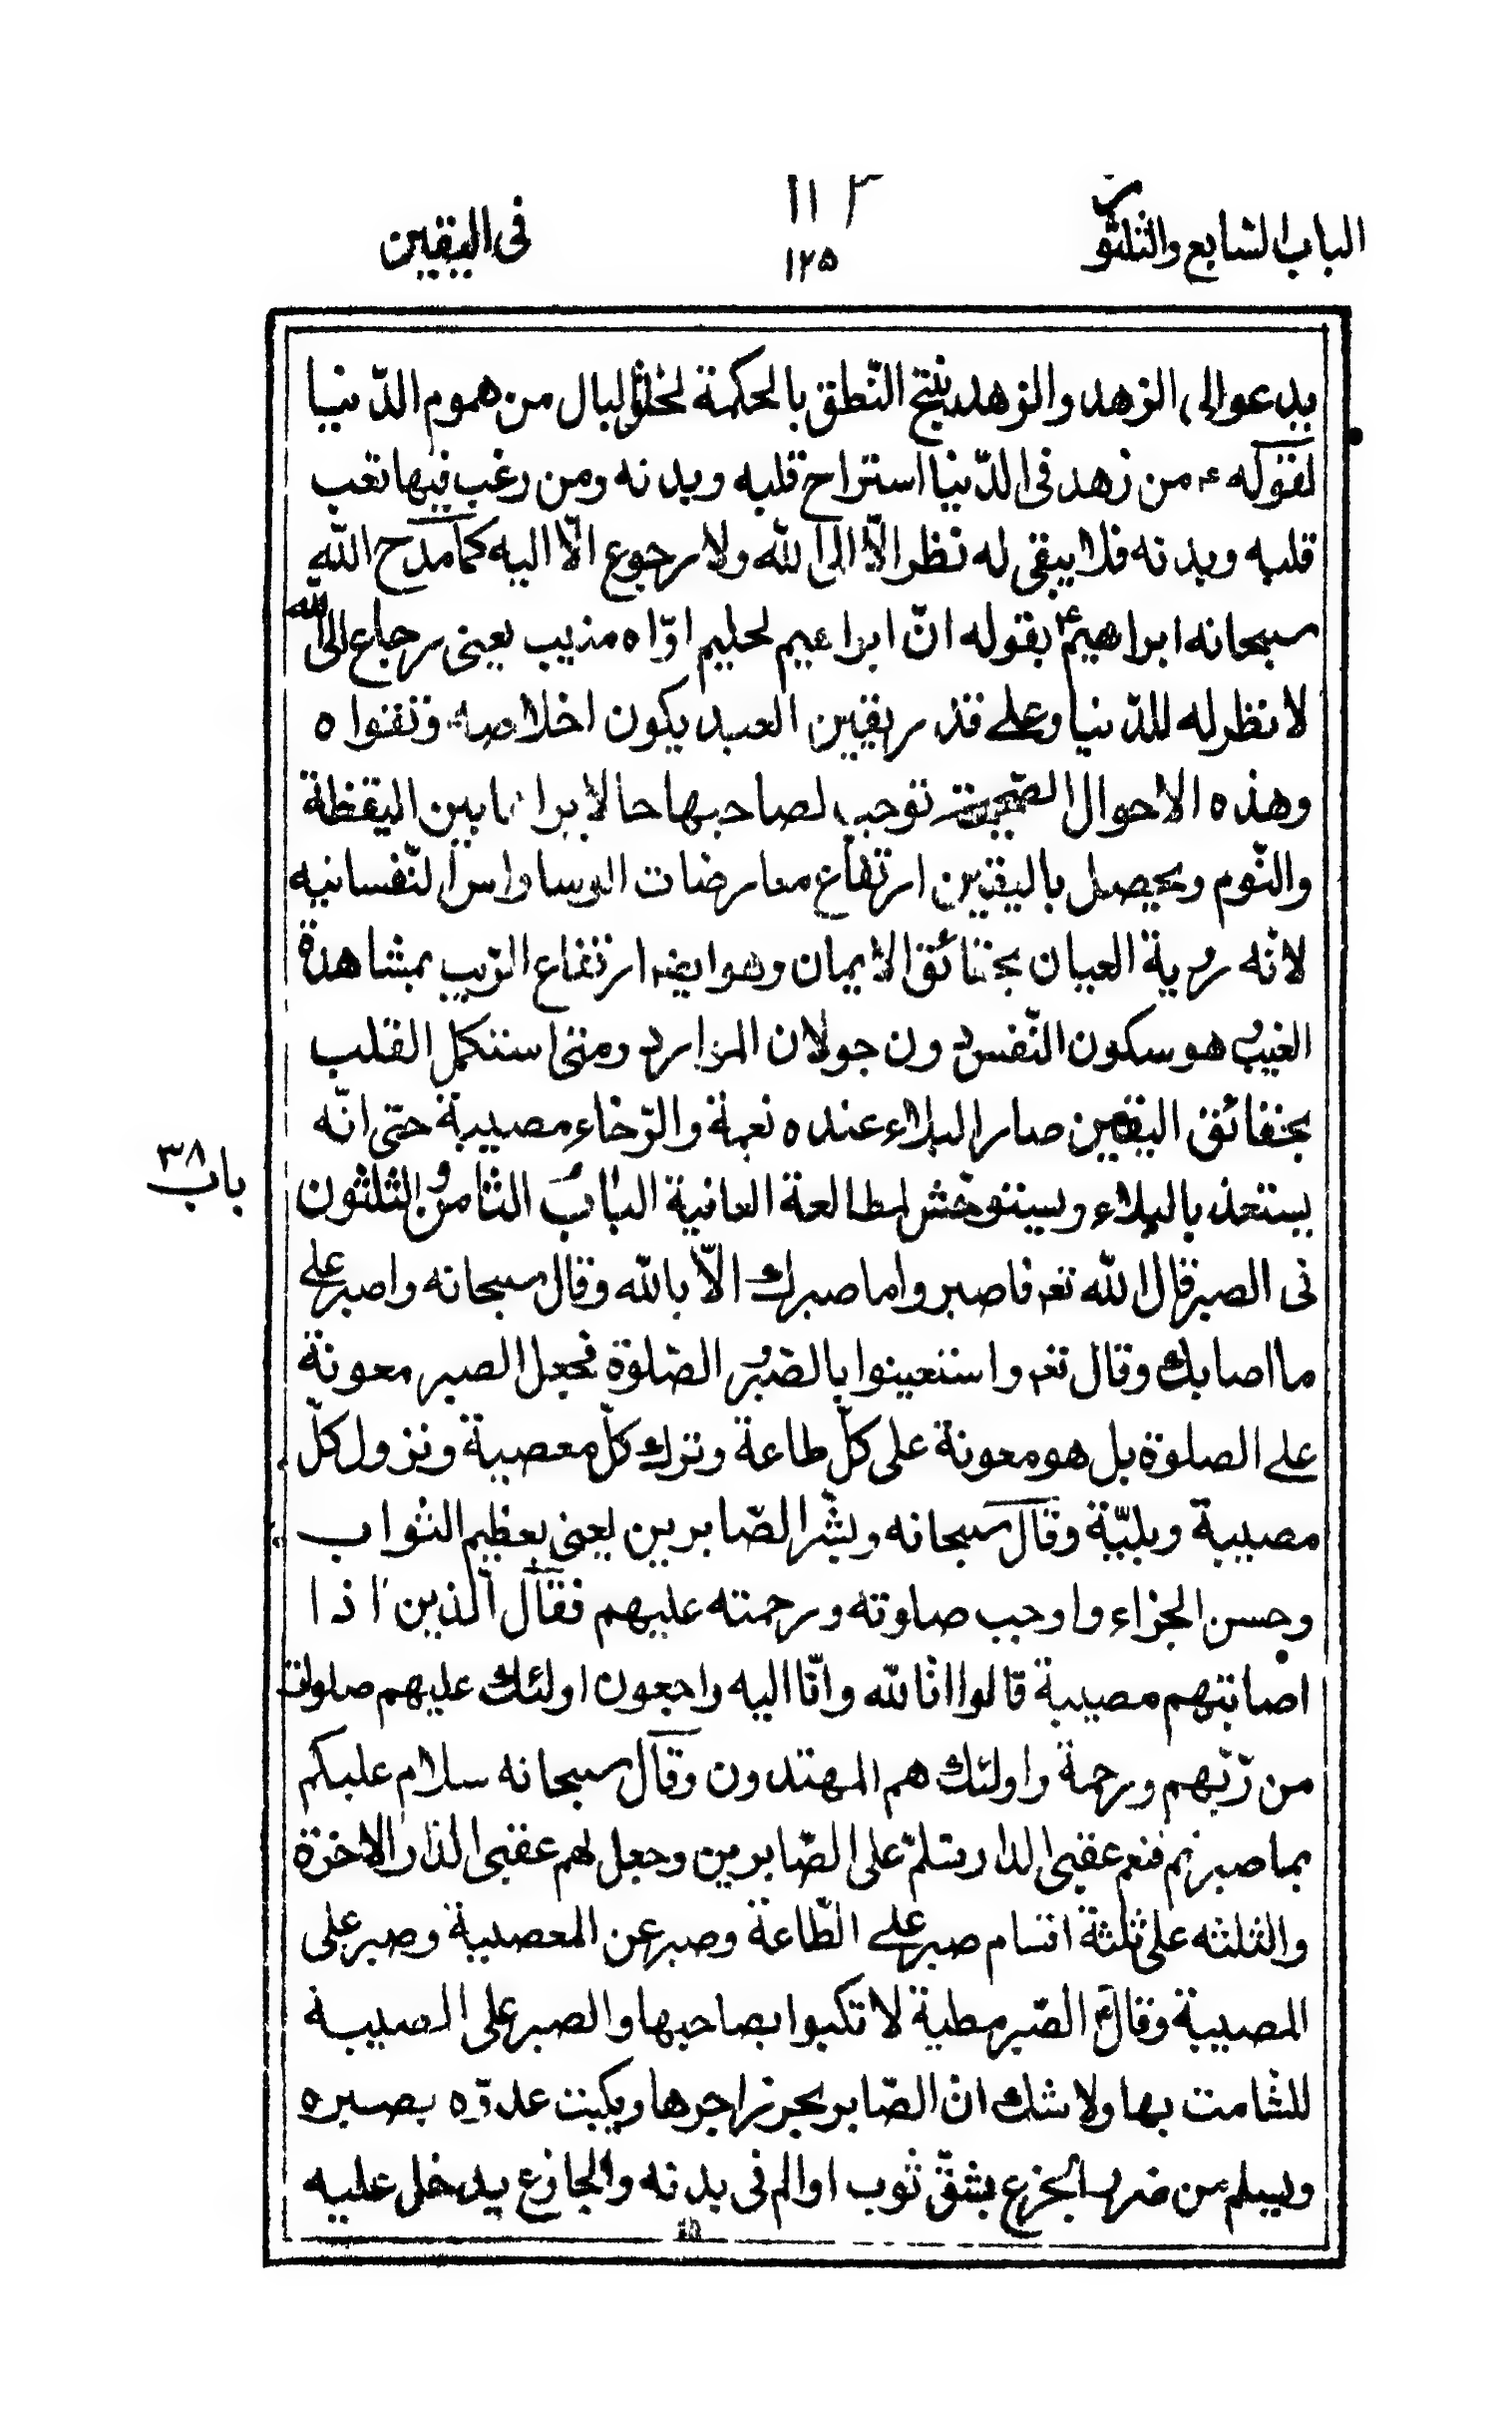 الباب السابع والثلثون
١١٣
١٢٥
فى اليقين
يدعوا الى الزهد والزهد ينتج النّطق بالحكمة لخلوّ البال من هموم الدّنيا
لقوله ع من زهد فى الدّنيا استراح قلبه وبدنه ومن رغب فيها تعب
قلبه وبدنه فلا يبقى له نظر الّا الى الله ولا رجوع الّا اليه كما مدح الله
سبحانه ابراهيم ع بقوله انّ ابراهيم لحليم اوّاه منيب يعنى رجاع الى الله
لا نظر له للدّنيا وعلى قدر يقين العبد يكون اخلاصه وتقواه
وهذه الاحوال الصّحيحة توجب لصاحبها حالا يراها بين اليقظة
والنّوم ويحصل باليقين ارتفاع معارضات الوساواس النّفسانيه
لانّه رؤية العيان بحقائق الايمان وهو ايضا ارتفاع الرّيب بمشاهدة
الغيب وهو سكون النّفس دون جولان الموارد ومتى استكمل القلب
بحقائق اليقين صار البلاء عنده نعمة والرّخاء مصيبة حتى انّه
يستعذب البلاء ويستوحش لمطالعة العافية الباب الثامن والثلثون
باب ٣٨
فى الصبر قال الله تعه فاصبر واما صبرك الّا بالله وقال سبحانه واصبر على
ما اصابك وقال تعه واستعينوا بالصّبر و الصّلوة فجعل الصبر معونة
على الصلوة بل هو معونة على كلّ طاعة وترك كلّ معصية ونزول كلّ
مصيبة وبليّة وقال سبحانه وبشّر الصّابرين يعنى بعظيم الثواب
وحسن الجزاء واوجب صلوته ورحمته عليهم فقال الّذين اذا
اصابتهم مصيبة قالوا انّا لله وانّا اليه راجعون اولئك عليهم صلوات
من ربّهم ورحمة واولئك هم المهتدون وقال سبحانه سلام عليكم
بما صبرتم فنعم عقبى الدار يسلّم على الصّابرين وجعل لهم عقبى الدّار الاخرة
والثلثه على ثلثة اقسام صبر على الطّاعة وصبر عن المعصية وصبر على
المصيبة وقال ع الصّبر مطية لا تكبوا بصاحبها والصبر على المصيبة
للشّامت بها ولا شك انّ الصّابر يحرز اجرها ويكبت عدوّه بصبره
ويسلم من ضرر الجزع بشقّ ثوب او الم فى بدنه والجازع يدخل عليه